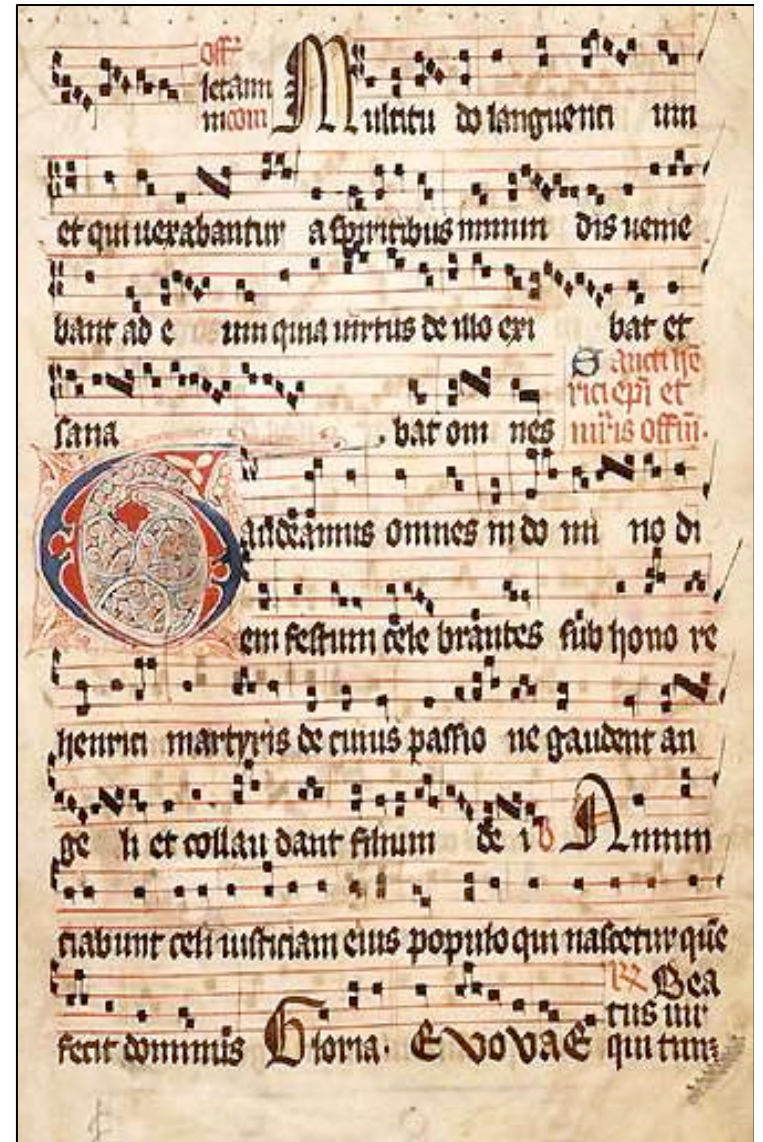 Off̄
letam
Multitu do languenti um
et qui uexabantur a spiritibus inmun dis uenie
bant ad e um quia uirtus de illo exi bat et
Sancti hē
rici epī et
sana bat om nes mr̄is offm̄.
Gaudeamus omnes in do mi no di
em festum cele brantes sub hono re
henrici martyris de cuius passio ne gaudent an
ge li et collau dant filium de i V Annun
ciabunt celi iusticiam eius populo qui nascetur quē
Bea
tus uir
fecit dominus Gloria. E VOVAE qui tim;